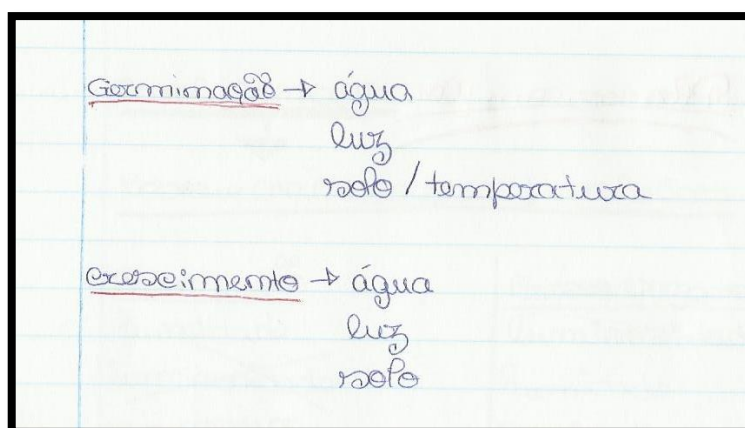 Germinação → água
luz
solo / temperatura
crescimento → água
luz
solo